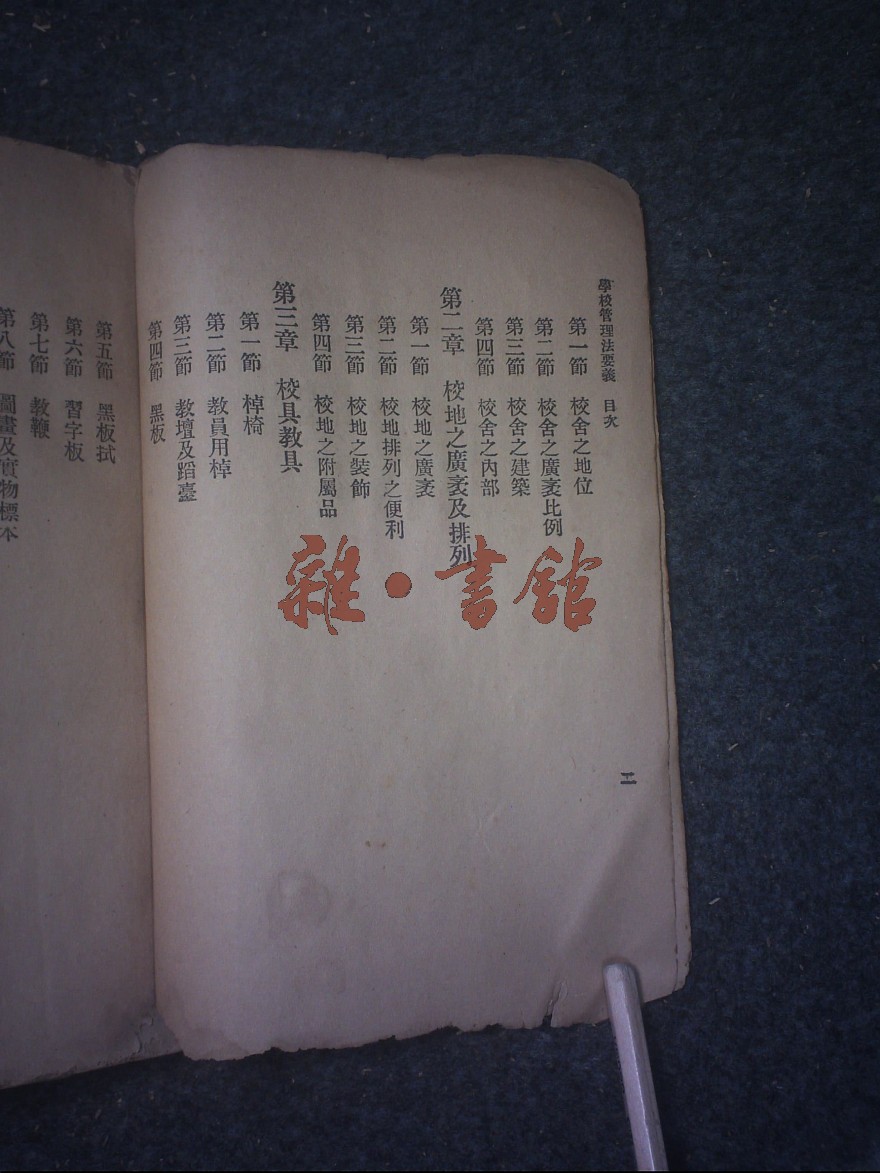 學校管理法要義 目次
第一節 校舍之地位
第二節 校舍之廣袤比例
第三節 校舍之建築
第四節 校舍之內部
第二章 校地之廣袤及排列
第一節 校地之廣袤
第二節 校地排列之便利
第三節 校地之裝飾
第四節 校地之附屬品
第三章 校具教具
第一節 棹椅
第二節 教員用棹
第三節 教壇及蹈臺
第四節 黑板
二
第五節 黑板拭
第六節 習字板
第七節 教鞭
第八節 圖畫及實物標本
雜·書館